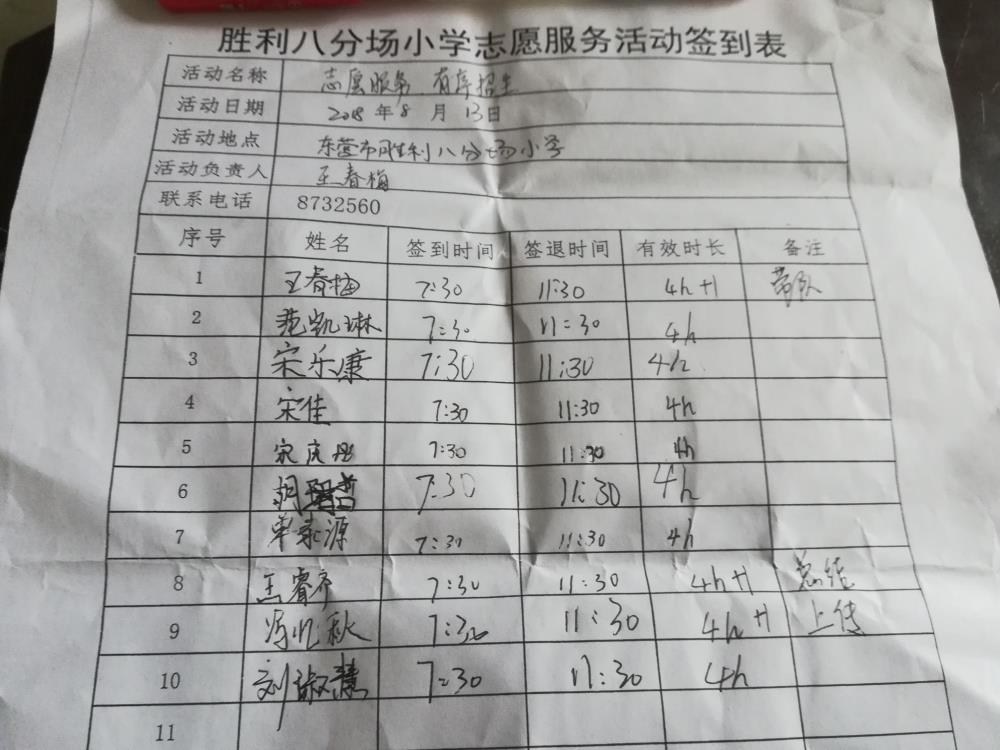 胜利八分场小学志愿服务活动签到表
活动名称 志愿服务 有序招生
活动日期 2018年8月13日
活动地点 东营市胜利八分场小学
活动负责人 王春梅
联系电话 8732560
序号 姓名 签到时间 签退时间 有效时长 备注
1 王春梅 7:30 11:30 4h+1 带队
2 范凯琳 7:30 11:30 4h
3 宋乐康 7:30 11:30 4h
4 宋佳 7:30 11:30 4h
5 宋庆彤 7:30 11:30 4h
6 胡 7:30 11:30 4h
7 单家源 7:30 11:30 4h
8 王睿齐 7:30 11:30 4h+1 总结
9 冯忆秋 7:30 11:30 4h+1 上传
10 刘淑慧 7:30 11:30 4h
11